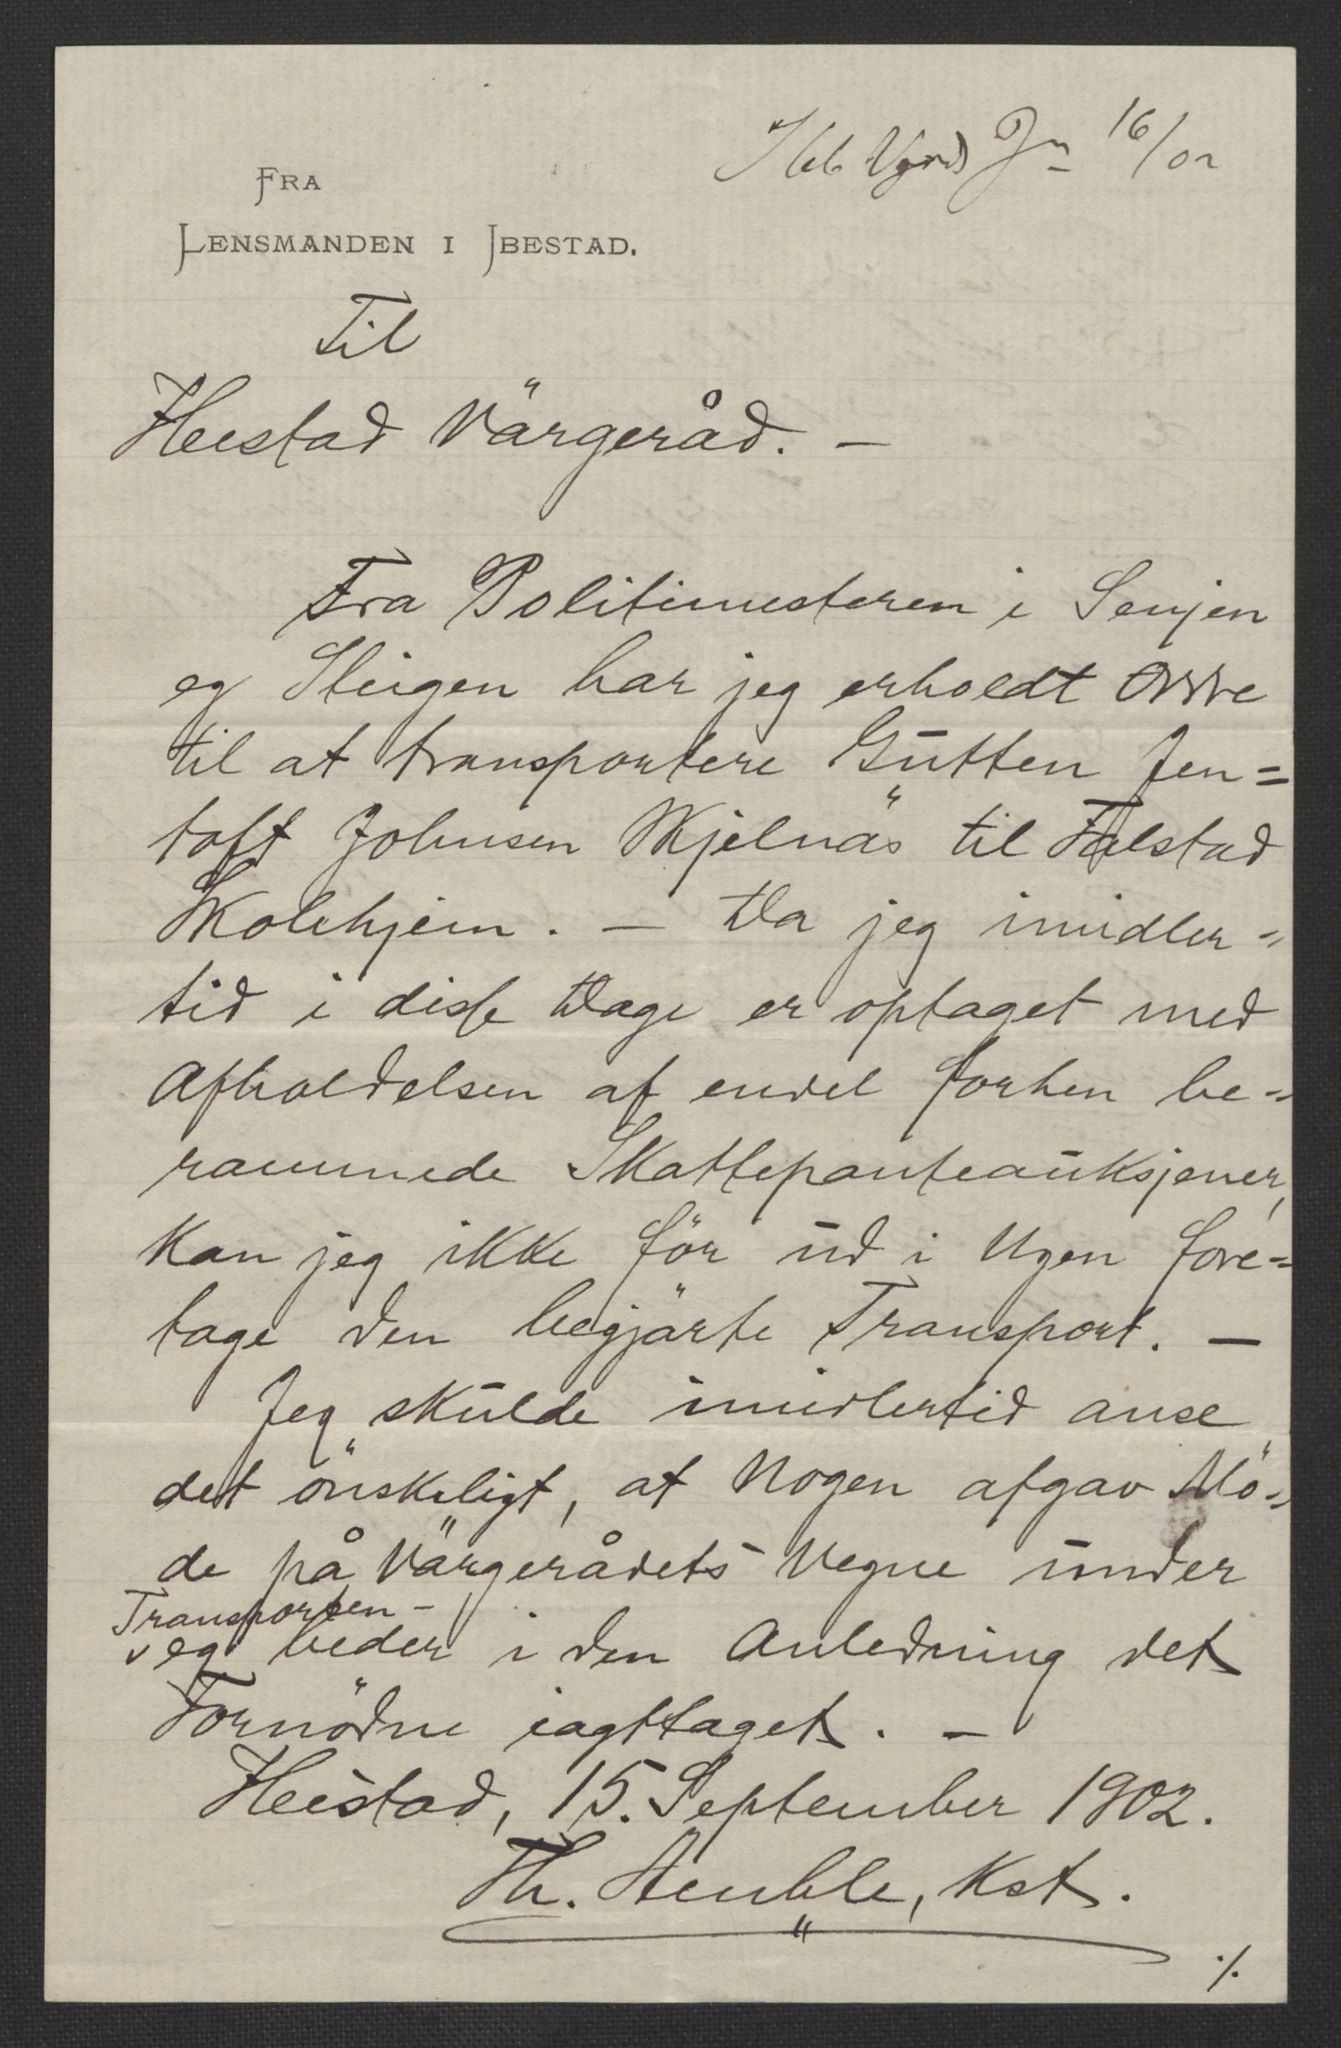 Jn 16/02
FRA
LENSMANDEN I JBESTAD.
Til
Værgeråd. –
Fra Politimesteren i Senjen
og Steigen har jeg erholdt Ordre
til at transportere Gutten Jen=
toft Johnsen Skjelnäs til Falstad
Skolehjem. – Da jeg imidler=
tid i disse Dage er optaget med
Afholdelsen af endel forhen be=
rammede Skattepanteauksjoner,
kan jeg ikke för ud i Ugen fore=
tage den begjärte Transport. –
Jeg skulde imidlertid anse
det önskeligt, at Nogen afgav Mö=
de på Värgerådets Vegne under
Transporten –
Jeg beder i den Anledning det
Fornödne iagttaget. –
15. September 1902.
Th. Kst.
./.